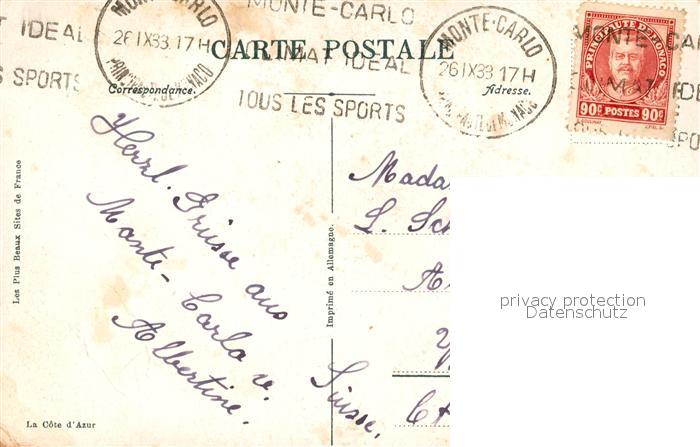 MONTE-CARLO
26 IX 33 17H
PRINCIPAUTÉ DE MONACO
MONTE-CARLO
CLIMAT IDEAL
TOUS LES SPORTS
MONTE-CARLO
26 IX 33 17H
PRINCIPAUTÉ DE MONACO
T IDEAL
S SPORTS
MONTE-CAR
MAT IDE
SPO
PRINCIPAUTE DE MONACO
90c POSTES 90c
CARTE POSTALE
Correspondance.
Adresse.
Herzl. Grüsse aus
Monte-Carlo
Albertine.
Mada
L. Sch
Suisse.
Les Plus Beaux Sites de France
Imprimé en Allemagne.
La Côte d'Azur
privacy protection
Datenschutz